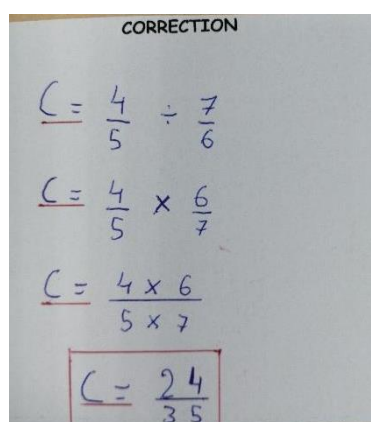 CORRECTION
C = 4/5 ÷ 7/6
C = 4/5 × 6/7
C = 4 × 6 / 5 × 7
C = 24/35